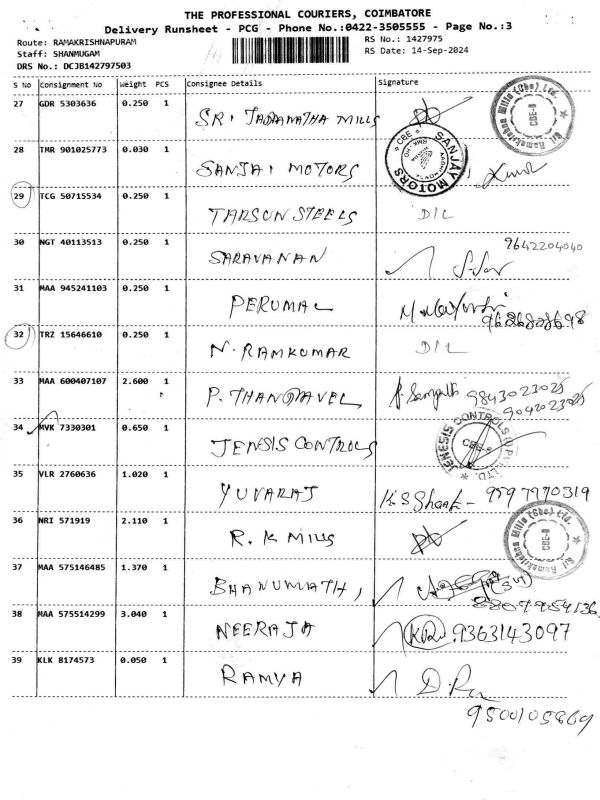 THE PROFESSIONAL COURIERS, COIMBATORE
Delivery Runsheet - PCG - Phone No.:0422-3505555 - Page No.:3
Route: RAMAKRISHNAPURAM RS No.: 1427975
Staff: SHANMUGAM RS Date: 14-Sep-2024
DRS No.: DCJB142797503
S No Consignment No Weight PCS Consignee Details Signature
27 GDR 5303636 0.250 1 SRI JAGANATHA MILLS
Sri Ramakrishna Mills (Cbe) Ltd. CBE-6
28 TMR 901025773 0.030 1 SANJAI MOTORS
SANJAY MOTORS CBE
29 TCG 50715534 0.250 1 TARSUN STEELS D/L
30 NGT 40113513 0.250 1 SARAVANAN 9642204040
31 MAA 945241103 0.250 1 PERUMAL
32 TRZ 15646610 0.250 1 N. RAMKUMAR D/L
33 MAA 600407107 2.600 1 P. THANGAVEL P. Sampath 9843023025
PCS 9042023025
34 MVK 7330301 0.650 1 JENSIS CONTROLS
JENESIS CONTROLS (I) PVT. LTD. CBE-6
35 VLR 2760636 1.020 1 YUVARAJ 9597970319
36 NRI 571919 2.110 1 R. K MILLS
Sri Ramakrishna Mills (Cbe) Ltd. CBE-6
37 MAA 575146485 1.370 1 BHANUMATHI
38 MAA 575514299 3.040 1 NEERAJA 9363143097
39 KLK 8174573 0.050 1 RAMYA
9500105869